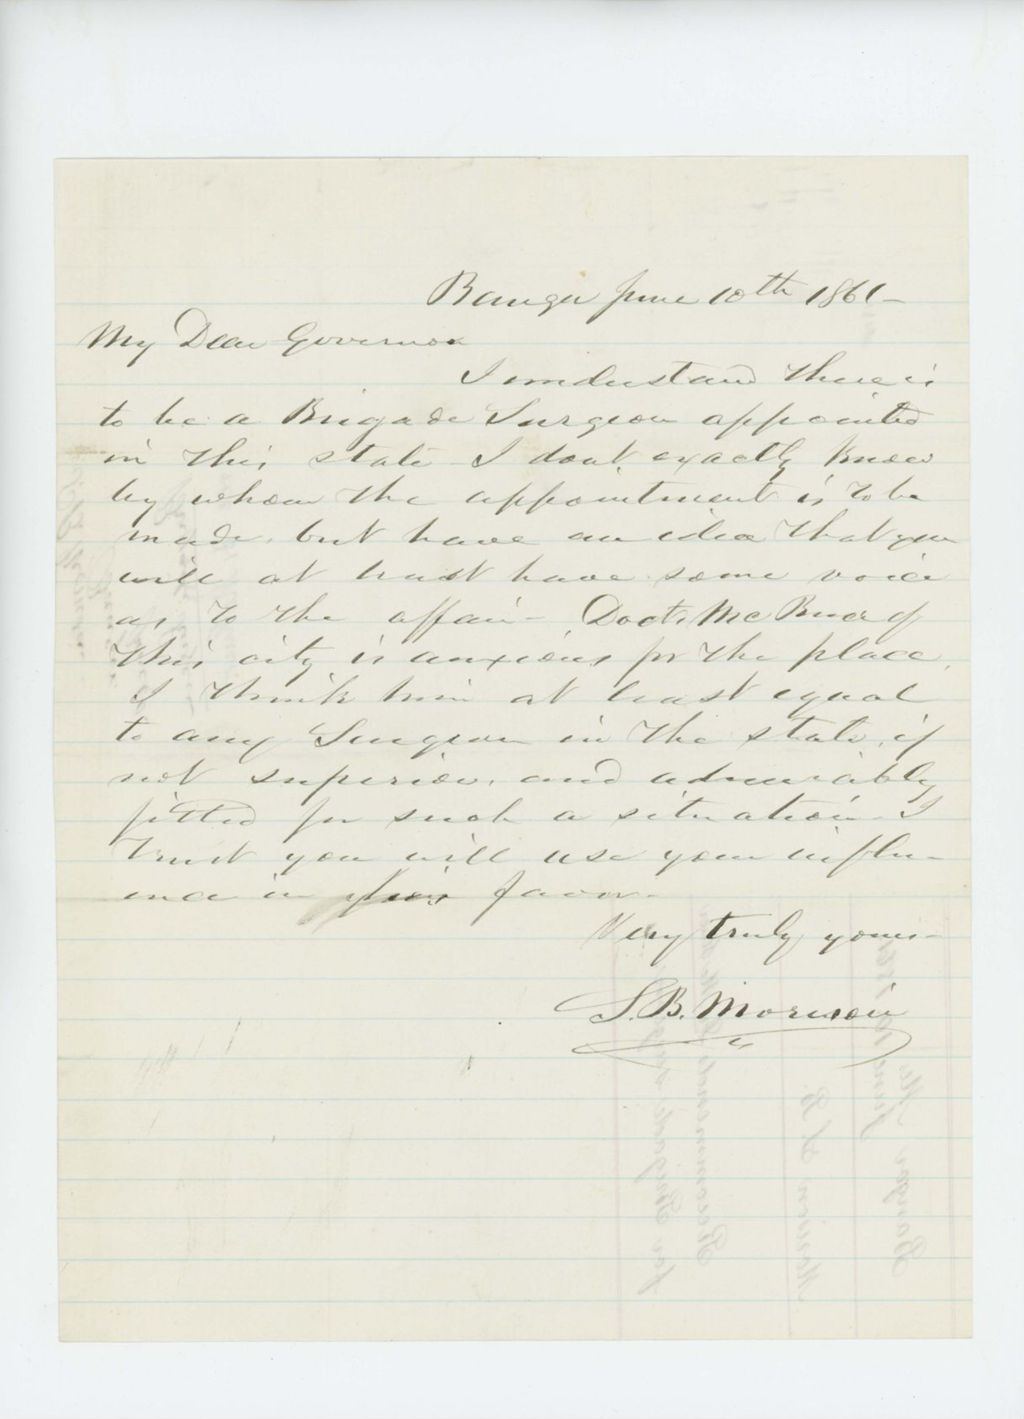 Bangor June 10th 1861-
My Dear Governor
I understand there is
to be a Brigade Surgeon appointed
in this state - I dont exactly know
by whom the appointment is to be
made, but have an idea that you
will at least have some voice
as to the affair - Doct. McRuer of
this city is anxious for the place,
I think him at least equal
to any Surgeon in the state, if
not superior, and admirably
fitted for such a situation - I
trust you will use your influ-
ence in his favor -
Very truly yours -
S. B. Morison